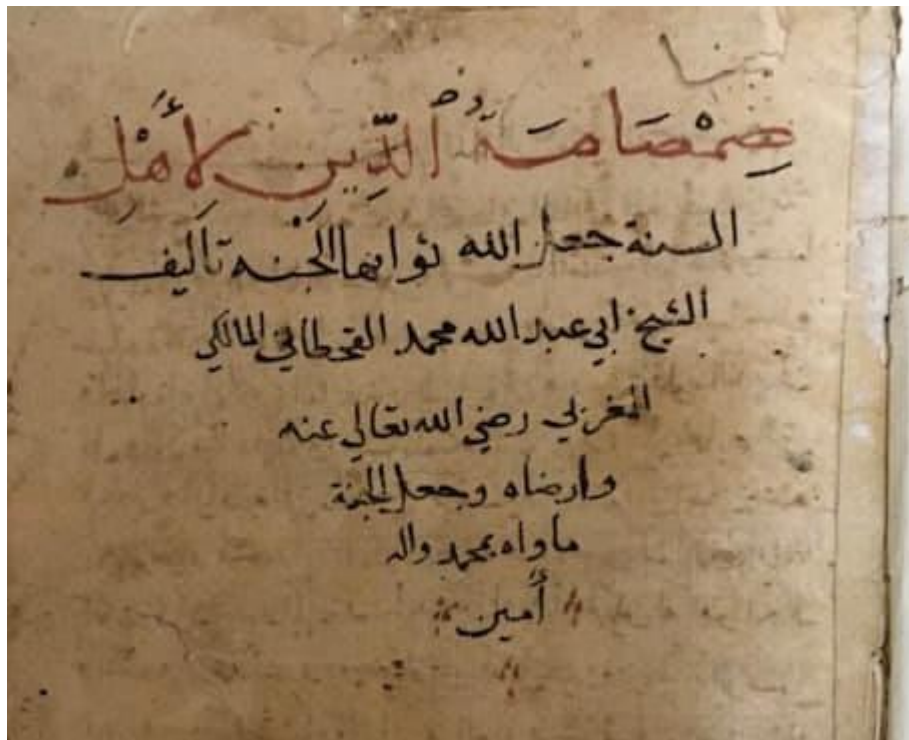 صِمْصَامَةُ ٱلدِّينِ لِأَهْلِ
السنة جعل الله ثوابها الجَنْه تأليف
الشيخ ابي عبد الله محمد القحطاني المالكي
المغربي رضي الله تعالي عنه
وارضاه وجعل الجنة
ماواه بمحمد واله
أمين